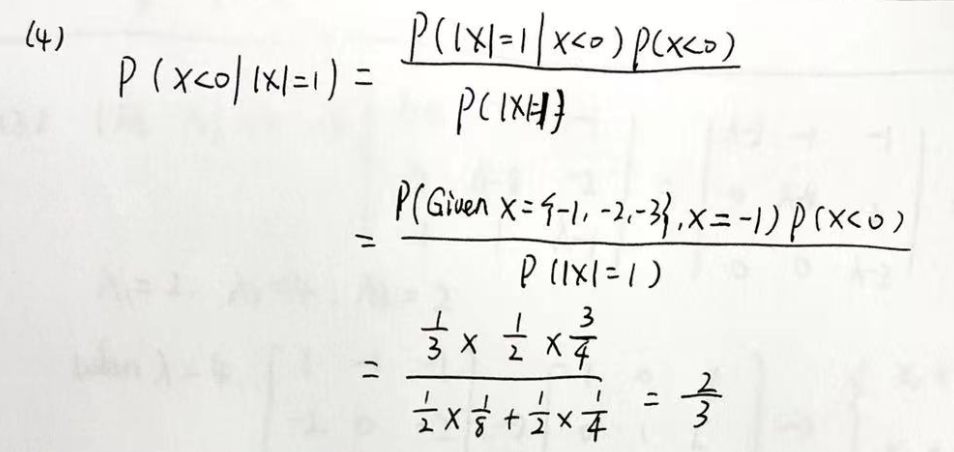 (4)
P(X<0||X|=1) = P(|X|=1|X<0)P(X<0) / P(|X|=1)
= P(Given X={-1,-2,-3},X=-1)P(X<0) / P(|X|=1)
= 1/3 × 1/2 × 3/4 / 1/2 × 1/8 + 1/2 × 1/4 = 2/3